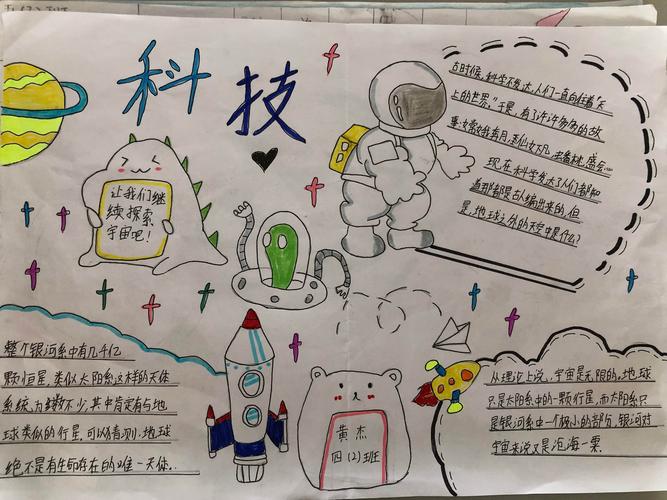 科技
古时候,科学不发达,人们一直向往着"天
上的世界,"于是,有了许许多多的故
事:嫦娥奔月,
现在科学发达了人们都知
道那都是古人编出来的,但
是,地球之外的天空中是什么?
让我们继
续探索
宇宙吧!
整个银河系中有几千亿
颗恒星,类似太阳系这样的天体
系统,为数不少,其中肯定有与地
球类似的行星,可以看测,地球
绝不是有生命存在的唯一天体.
黄杰
四(2)班
从理论上说,宇宙是无限的。地球
只是太阳系中的一颗行星,而太阳系只
是银河系中一个极小的部份,银河对
宇宙来说又是沧海一粟.